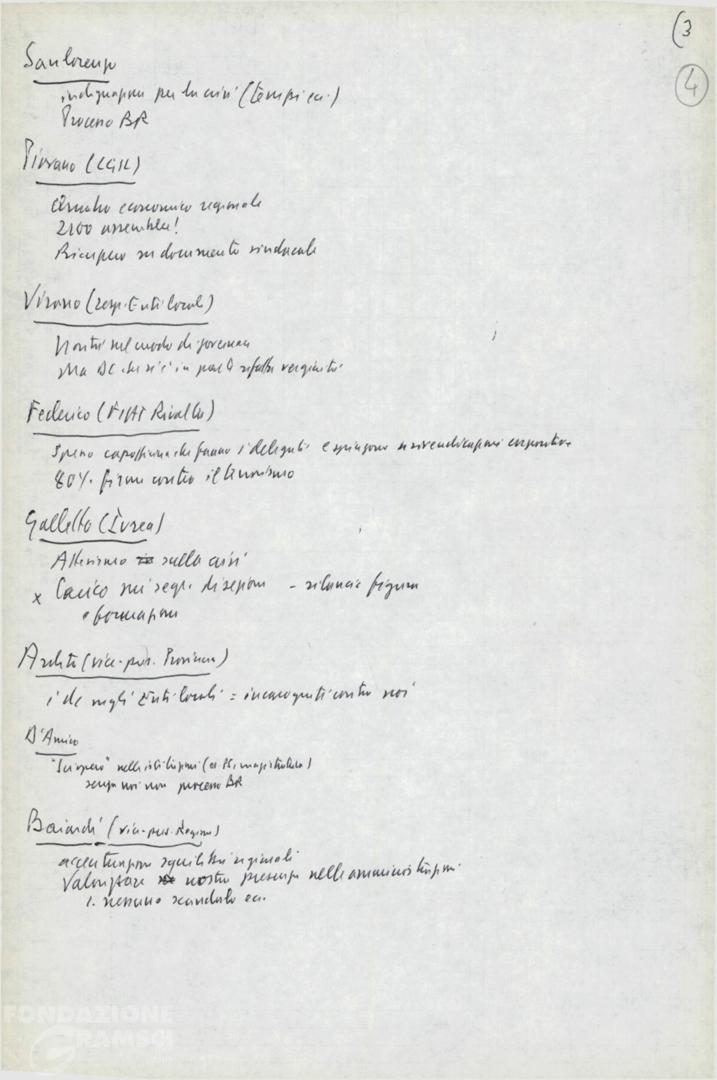 (3
4
Sanlorenzo
indignazione per la crisi (tempi ecc.)
Processo BR
Piovano (CGIL)
economico regionale
2100 assemblee!
Recupero su documento sindacale
Virano (resp. Enti locali)
nostri sul modo di governare
Ma DC che si è in parte rifatta verginità
Federico (FIAT Rivalta)
Spesso che fanno i delegati e spingono a rivendicazioni corporative
80% firme contro il terrorismo
Galletto (Ivrea)
Attesismo sulla crisi
x Carico sui segr. di sezione - rilancio figura
e formazione
Ardito (vice-pres. Provincia)
i dc negli Enti locali = incarogniti contro noi
D'Amico
"Sciopero" nelle istituzioni (es. PS, magistratura)
senza noi non processo BR
Baiardi (vice-pres. Regione)
accentuazione squilibri regionali
Valorizzare nostra presenza nelle amministrazioni
1. nessuno scandalo ecc.
FONDAZIONE
GRAMSCI